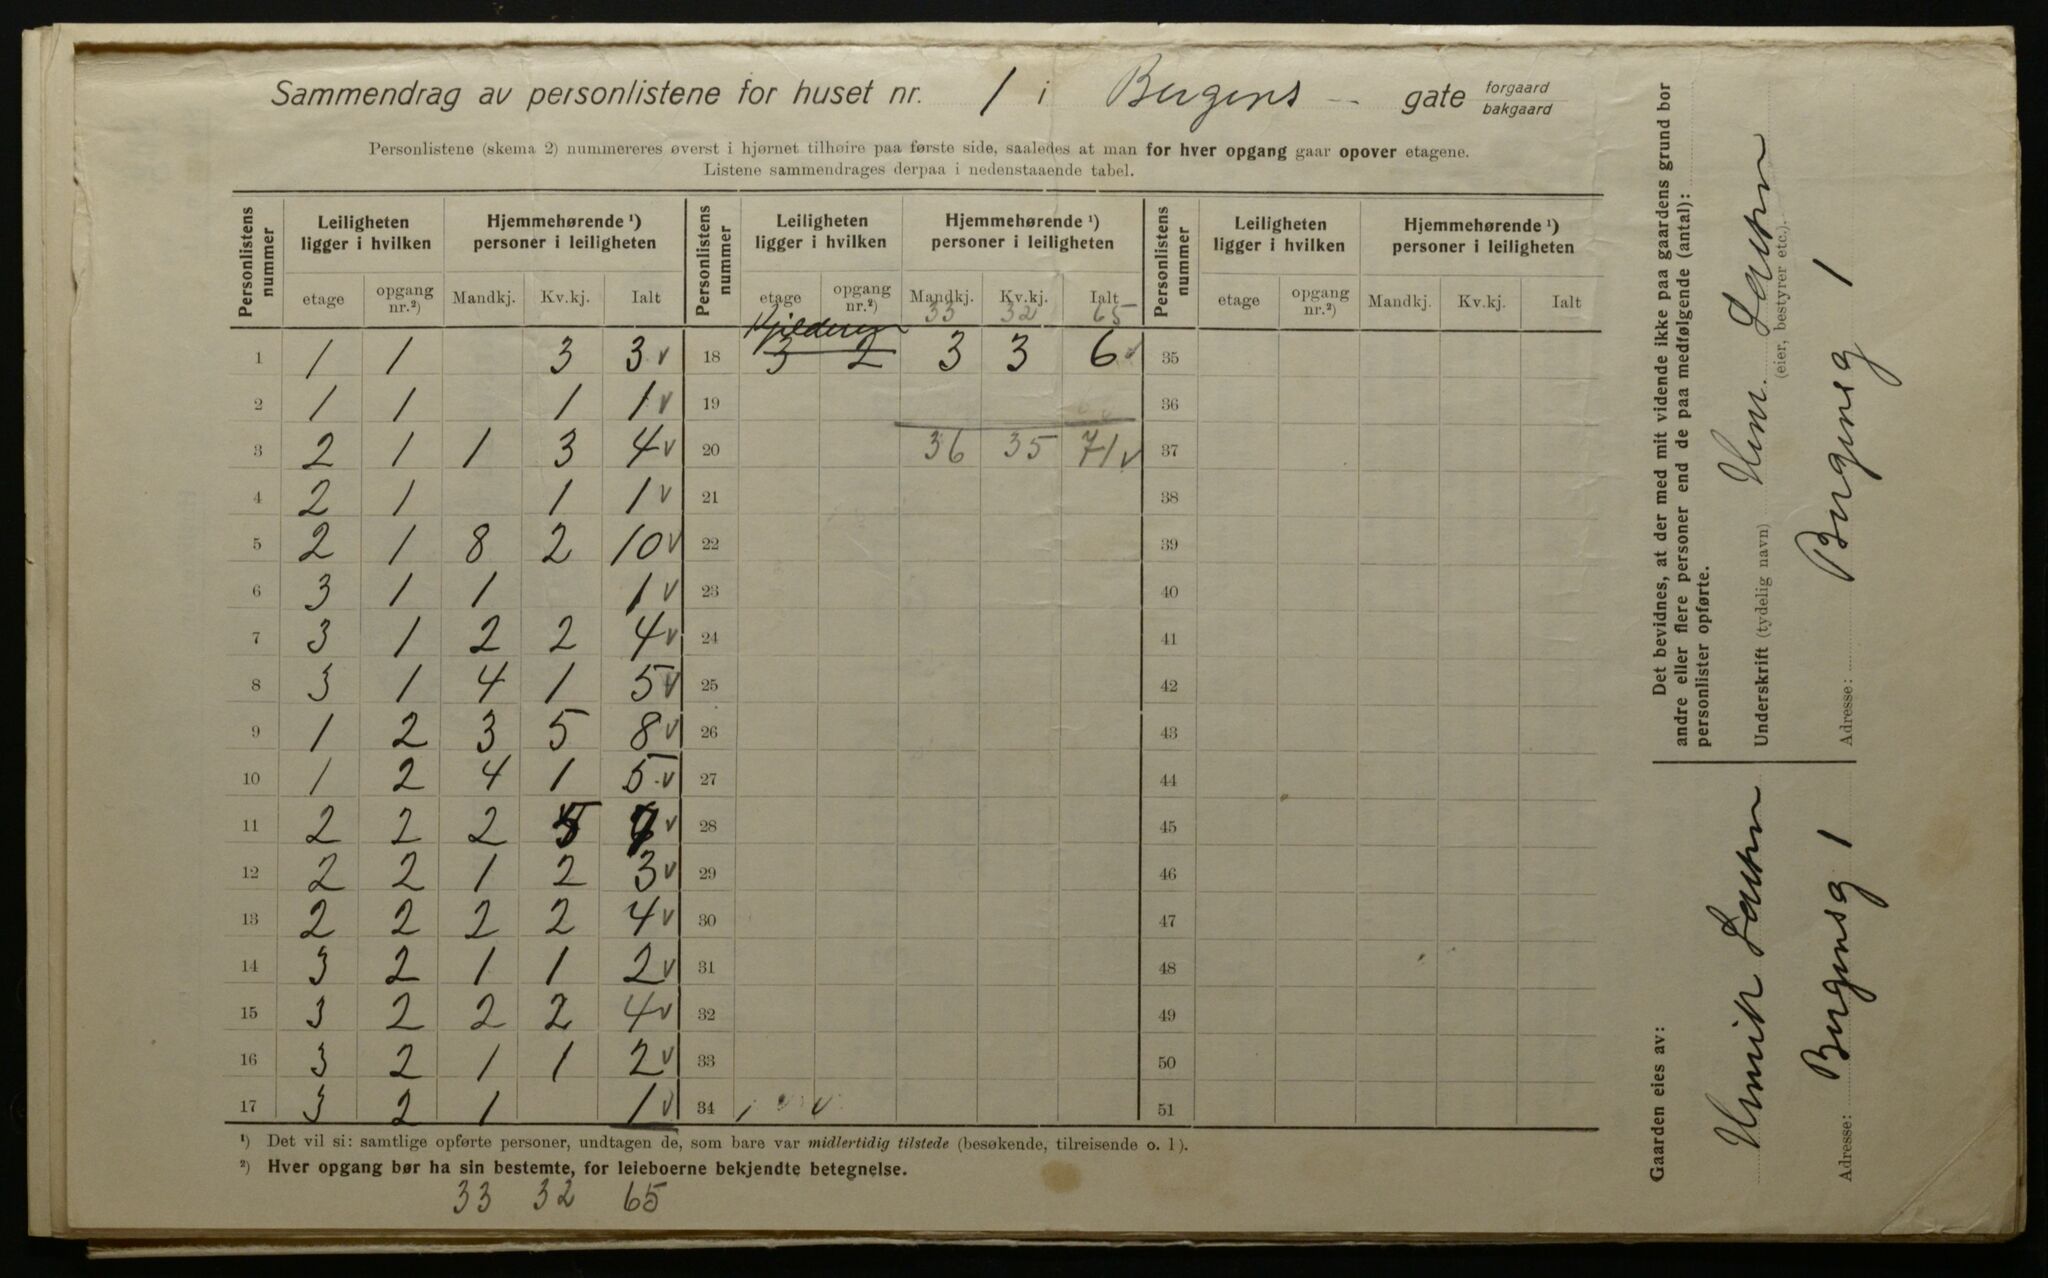 Sammendrag av personlistene for huset nr. 1 i Bergens gate forgaard / bakgaard
Personlistene (skema 2) nummereres øverst i hjørnet tilhøire paa første side, saaledes at man for hver opgang gaar opover etagene.
Listene sammendrages derpaa i nedenstaaende tabel.
Personlistens nummer | Leiligheten ligger i hvilken | Hjemmehørende ¹) personer i leiligheten | Personlistens nummer | Leiligheten ligger i hvilken | Hjemmehørende ¹) personer i leiligheten | Personlistens nummer | Leiligheten ligger i hvilken | Hjemmehørende ¹) personer i leiligheten
etage | opgang nr.²) | Mandkj. | Kv.kj. | Ialt | etage | opgang nr.²) | Mandkj. | Kv.kj. | Ialt | etage | opgang nr.²) | Mandkj. | Kv.kj. | Ialt
33 32 65
1 1 1 3 3 v 18 3 2 3 3 6 v 35
2 1 1 1 1 v 19 36
3 2 1 1 3 4 v 20 36 35 71 v 37
4 2 1 1 1 v 21 38
5 2 1 8 2 10 v 22 39
6 3 1 1 1 v 23 40
7 3 1 2 2 4 v 24 41
8 3 1 4 1 5 v 25 42
9 1 2 3 5 8 v 26 43
10 1 2 4 1 5 v 27 44
11 2 2 2 5 7 v 28 45
12 2 2 1 2 3 v 29 46
13 2 2 2 2 4 v 30 47
14 3 2 1 1 2 v 31 48
15 3 2 2 2 4 v 32 49
16 3 2 1 1 2 v 33 50
17 3 2 1 1 v 34 51
¹) Det vil si: samtlige opførte personer, undtagen de, som bare var midlertidig tilstede (besøkende, tilreisende o. l).
²) Hver opgang bør ha sin bestemte, for leieboerne bekjendte betegnelse.
33 32 65
Det bevidnes, at der med mit vidende ikke paa gaardens grund bor
andre eller flere personer end de paa medfølgende (antal):
personlister opførte.
Underskrift (tydelig navn)
(eier, bestyrer etc.).
Adresse: Bergensg 1
Gaarden eies av:
Adresse: Bergensg 1